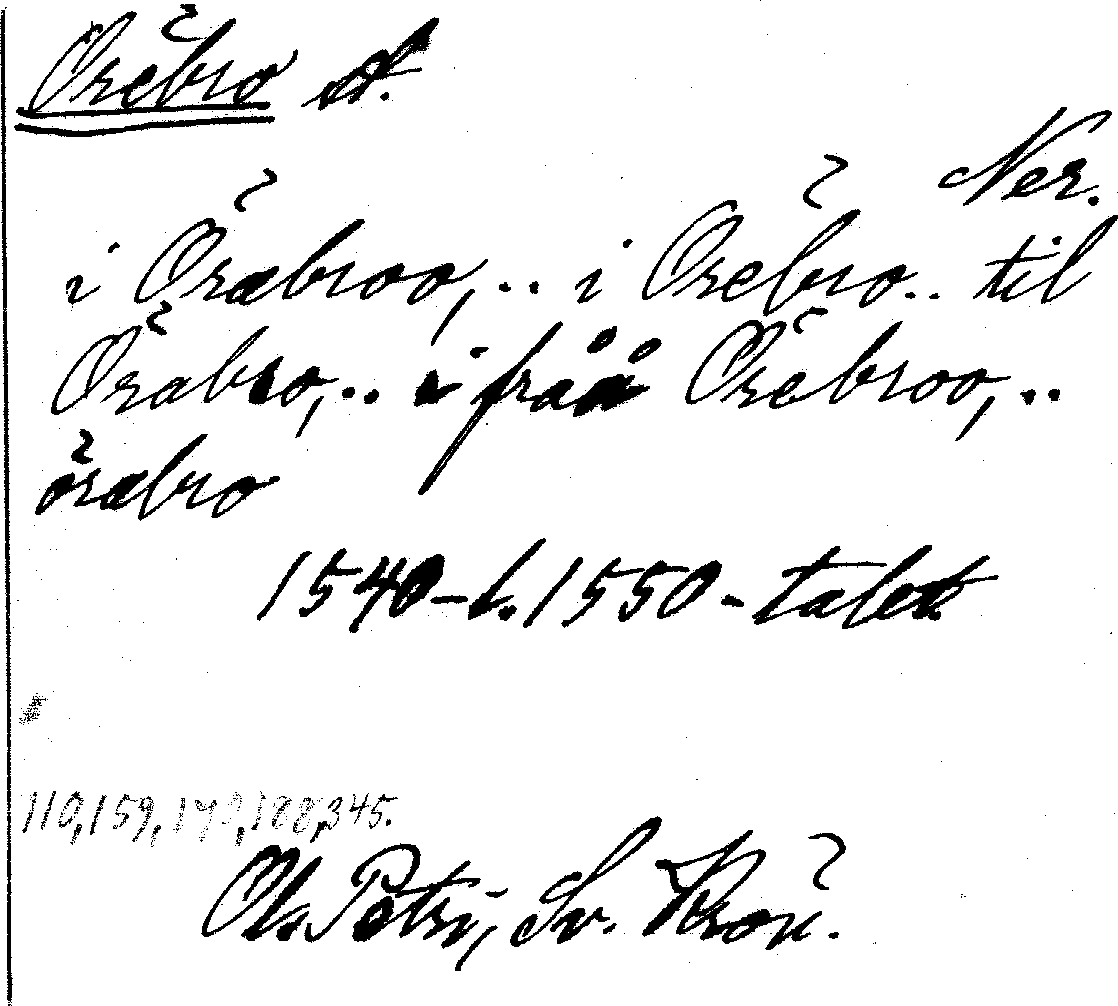 Örebro st.
När.
i Öräbroo, .. i Örebro .. til
Örabro, .. i fraan Örebroo, ..
öräbro
1540-t. 1550-talet
110, 159, 188, 345.
Ol. Petri, Sv. Krön.